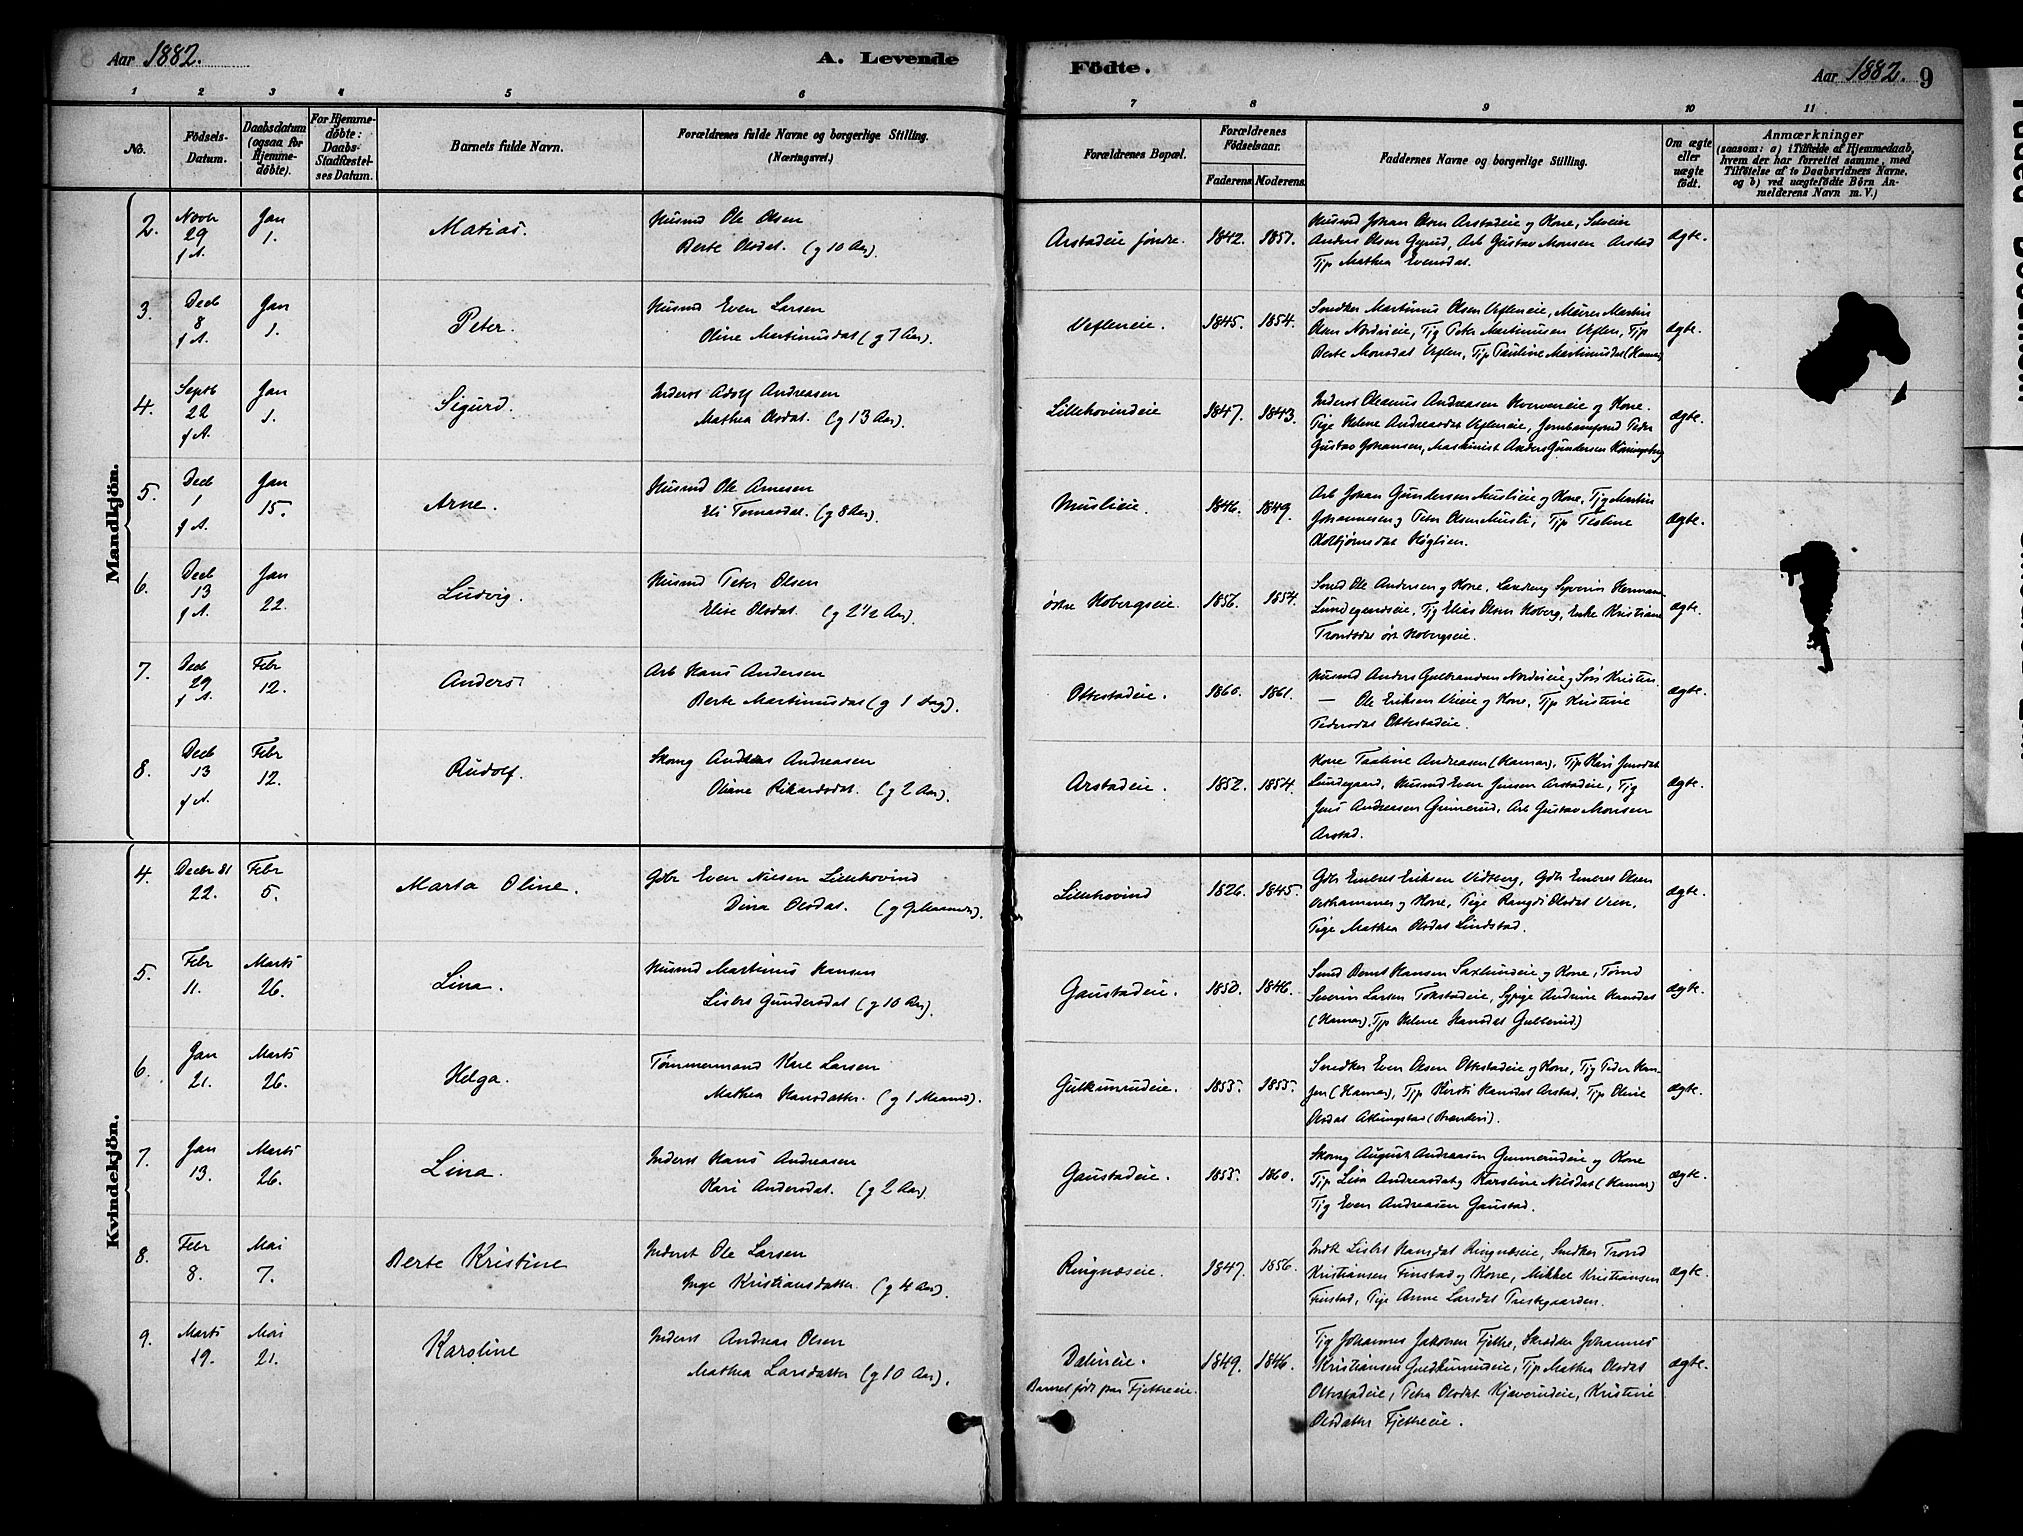 Aar 1882.
A. Levende
Födte.
Aar 1882. 9
1 2 3 4 5 6 7 8 9 10 11
No.
Födsels-Datum.
Daabsdatum (ogsaa for Hjemmedöbte).
For Hjemmedöbte: Daabs-Stadfæstelses Datum.
Barnets fulde Navn.
Forældrenes fulde Navne og borgerlige Stilling. (Næringsvei.)
Forældrenes Bopæl.
Forældrenes Födselsaar.
Faderens Moderens
Faddernes Navne og borgerlige Stilling.
Om ægte eller uægte født.
Anmærkninger
(saasom: a) i Tilfælde af Hjemmedaab, hvem der har forrettet samme, med Tilföielse af to Daabsvidners Navne, og b) ved uægtefödte Börn Anmelderens Navn m. V.)
Mandkjön.
2. Novb 29 f A. Jan 1. Matias.
Husmd Ole Olsen
Berte Olsdat. (g 10 Aar).
Arstadeie søndre. 1842. 1851.
Husmd Johan Olsen Arstadeie og Kone, Selveier
Anders Olsen Gyrud, Arb Gustav Monsen Arstad
Tjp Mathea Evensdat.
Ægte.
3. Decb 8 f A. Jan 1. Peter.
Husmd Even Larsen
Oline Martinusdat (g 7 Aar).
Ufleneie. 1845. 1854.
Snedker Martinus Olsen Ufleneie, Meirer Martin
Olsen Nordvieie, Tjg Peter Martinusen Uflen, Tjp
Berte Monsdat Uflen, Tjp Pauline Martinusdat (Hamar)
Ægte.
4. Septb 22 f A. Jan 1. Sigurd.
Inderst Adolf Andreasen
Mathea Olsdat. (g 13 Aar).
Lillehovindeie 1847. 1843.
Inderst Oleanus Andreasen Hverveneie og Kone.
Pige Helene Andreasdat Ufleneie, Jernbanefmd Peder
Gustav Johansen, Maskinist Anders Gundersen Kongsberg
Ægte.
5. Decb 1 f A. Jan 15. Arne.
Husmd Ole Arnesen
Eli Tomasdat. (g 8 Aar).
Muslieie. 1846. 1849.
Arb Johan Gundersen Muslieie og Kone, Tjg Martin
Johannesen og Peter Olsen Musli, Tjp
Ægte.
6. Decb 13 f A. Jan 22. Ludvig.
Husmd Peter Olsen
Elise Olsdat. (g 2 1/2 Aar).
østre Kobergseie. 1856. 1854.
Smed Ole Andersen og Kone, Syverin Herman
Lundegaardseie, Tjg Elias Olsen Koberg, Enke Kristiane
Trondsdat øst Kobergseie.
Ægte.
7. Decb 29 f A. Febr 12. Anders.
Arb Hans Andersen
Berte Martinusdat (g 1 Dag).
Ottestadeie. 1860. 1861.
Husmd Anders Gulbrandsen Nordvieie og
— Ole Eriksen Vieie og Kone, Tjp Kristine
Pedersdat Ottestadeie.
Ægte.
8. Decb 13 f A. Febr 12. Rudolf.
Skomg Andreas Andreasen
Oliane Rikardsdat. (g 2 Aar).
Arstadeie. 1852. 1854.
Kone Pauline Andreasen (Hamar), Tjp Kari Jensdat
Lundgaard, Husmd Even Jensen Arstadeie, Tjg
Jens Andreasen Gunnerud, Arb Gustav Monsen
Arstad.
Ægte.
Kvindekjön.
4. Decbr 81 22. Febr 5. Marta Oline.
Gdbr Even Nilsen Lillehovind
Dina Olsdat. (g 9 Maaneder).
Lillehovind 1826. 1845.
Gdbr Embret Eriksen Vidberg, Gdbr Embret Olsen
og Kone, Pige Rangdi Olsdat Veen,
Pige Mathea Olsdat Lindstad.
Ægte.
5. Febr 11. Marts 26. Lina.
Husmd Martinus Hansen
Lisbet Gundersdat (g 10 Aar).
Gaustadeie. 1850. 1846.
Smed Bernt Hansen Saxlundeie og Kone, Tømd
Severin Larsen Tokstadeie, Sypige Andrine Hansdat
(Hamar), Tjp Helene Hansdat Gulterud)
Ægte.
6. Jan 21. Marts 26. Helga.
Tømmermand Kare Larsen
Mathea Hansdatter. (g 1 Maaned).
Gulkunrudeie. 1855. 1855.
Snedker Even Olsen Ottestadeie og Kone, Tjg Peder Han-
sen (Hamar), Tjp Kirsti Hansdat Arstad, Tjp Oline
Olsdat Atlungstad (Brænderi).
Ægte.
7. Jan 13. Marts 26. Lina.
Inderst Hans Andreasen
Kari Andersdat. (g 2 Aar).
Gaustadeie. 1855. 1860.
Skomg August Andreasen Gunnerudeie og Kone
Tjp Lisa Andreasdat og Karoline Nilsdat (Hamar)
Tjg Even Andreasen Gaustad.
Ægte.
8. Febr 8. Mai 7. Berte Kristine
Inderst Ole Larsen
Inge Kristiansdatter (g 4 Aar).
Ringnæseie. 1847. 1856.
Indk Lisbet Hansdat Ringnæseie, Snedker Trond
Kristiansen Finstad og Kone, Mikkel Kristiansen
Finstad, Pige Anne Larsdat Prestgaarden.
Ægte.
9. Marts 19. Mai 21. Karoline
Inderst Andreas Olsen
Mathea Larsdatter (g 10 Aar).
Dalineie.
Barnet født paa Fjetreeie. 1849. 1846.
Tjg Johannes Jakobsen Fjetre, Skrædder Johannes
Kristiansen Guldkunrudeie, Tjp Mathea Olsdat
Ottestadeie, Petra Olsdat Kjæverudeie, Kristine
Olsdatter Fjetreeie.
Ægte.